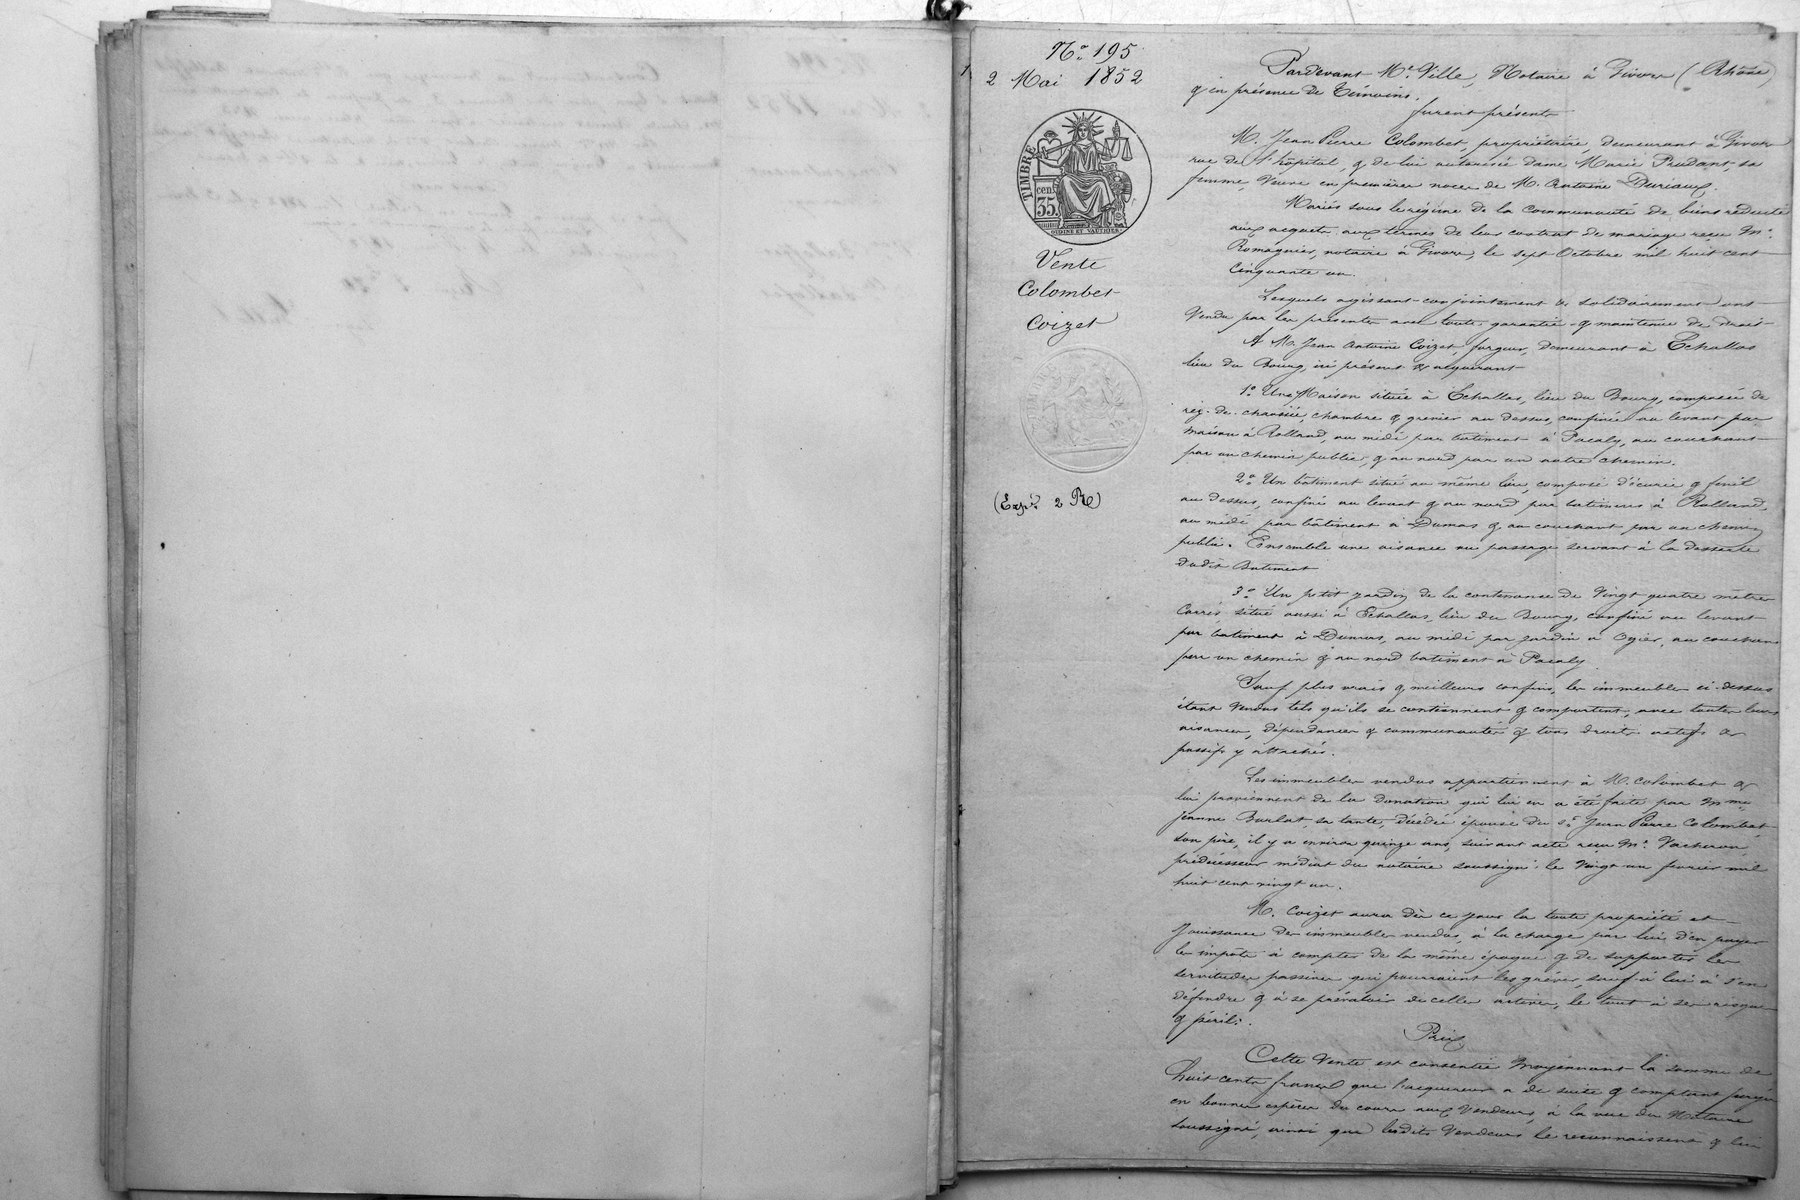 N.º 195
2 Mai 1852
TIMBRE
cen.
35.
OUDINE ET VAUTHIER
Vente
Colombet
Coizet
(Exp.é 2 R)
Pardevant M.e Ville, Notaire à Givors (Rhône)
& en présence de Témoins.
furent présents
M. Jean Pierre Colombet, propriétaire, demeurant à Givors
rue de l'hôpital, & de lui autorisée dame Marie Prudant, sa
femme, Veuve en premières noces de M. Antoine Duriaux.
Mariés sous le régime de la communauté de biens réduite
aux acquets, aux termes de leur contrat de mariage reçu M.e
Romagnier, notaire à Givors, le sept Octobre mil huit cent
Cinquante un.
Lesquels agissant conjointement & solidairement ont
Vendu par ces présentes avec toute garantie & maintenue de droit
A M. Jean Antoine Coizet, forgeur, demeurant à Echallas
lieu du Bourg, ici présent & acquérant
1.º Une Maison située à Echallas, lieu du Bourg, composée de
rez-de-chaussée, chambre & grenier au dessus, confinée au levant par
maison à Rolland, au midi par batiment à Pacaly, au couchant
par un chemin public, & au nord par un autre chemin.
2.º Un bâtiment situé au même lieu, composé d'écurie & fenil
au dessus, confiné au levant & au nord par batiments à Rolland,
au midi par bâtiment à Dumas & au couchant par un chemin
public. Ensemble une aisance ou passage servant à la desserte
dudit Batiment
3.º Un petit jardin de la contenance de Vingt quatre mètres
Carrés situé aussi à Echallas, lieu du Bourg, confiné au levant
par batiment à Dumas, au midi par jardin à Ogier, au couchant
par un chemin & au nord batiment à Pacaly.
Sauf plus vrais & meilleurs confins, les immeubles ci-dessus
étant Vendus tels qu'ils se contiennent & comportent, avec toutes leurs
aisances, dépendances & communautés & tous droits actifs &
passifs y attachés.
Les immeubles vendus appartiennent à M. Colombet &
lui proviennent de la donation qui lui en a été faite par Mme
Jeanne Burlat, sa tante, décédée épouse du S.r Jean Pierre Colombet
son père, il y a environ quinze ans, suivant acte reçu M.e Vacheron
prédécesseur médiat du notaire soussigné le Vingt un février mil
huit cent vingt un.
M. Coizet aura dès ce jour la toute propriété et
Jouissance des immeubles vendus, à la charge par lui d'en payer
les impôts à compter de la même époque & de supporter les
servitudes passives qui pourraient les gréver, sauf à lui à s'en
défendre & à se prévaloir de celles actives, le tout à ses risques
& périls.
Prix
Cette Vente est consentie Moyennant la somme de
huit cents francs que l'acquéreur a de suite & comptant payée
en bonnes espèces du cours aux Vendeurs, à la vue du Notaire
soussigné, ainsi que lesdits Vendeurs le reconnaissent & lui